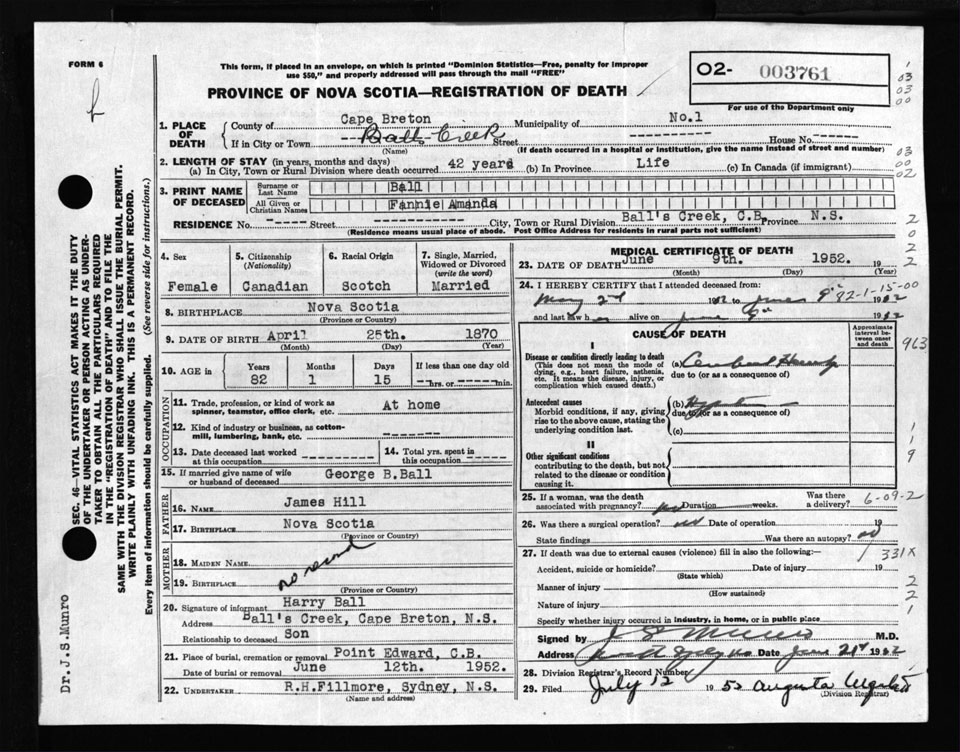 FORM 6
This form, if placed in an envelope, on which is printed "Dominion Statistics—Free, penalty for improper
use $50," and properly addressed will pass through the mail "FREE"
PROVINCE OF NOVA SCOTIA—REGISTRATION OF DEATH
02- 003761
For use of the Department only
1. PLACE OF DEATH
County of Cape Breton Municipality of No.1
If in City or Town Balls Creek Street House No.
(Name) (If death occurred in a hospital or institution, give the name instead of street and number)
2. LENGTH OF STAY (in years, months and days)
(a) In City, Town or Rural Division where death occurred 42 years (b) In Province Life (c) In Canada (if immigrant)
3. PRINT NAME OF DECEASED
Surname or Last Name Ball
All Given or Christian Names Fannie Amanda
RESIDENCE No. Street City, Town or Rural Division Ball's Creek, C.B. Province N.S.
(Residence means usual place of abode. Post Office Address for residents in rural parts not sufficient)
4. Sex Female
5. Citizenship (Nationality) Canadian
6. Racial Origin Scotch
7. Single, Married, Widowed or Divorced (write the word) Married
8. BIRTHPLACE Nova Scotia
(Province or Country)
9. DATE OF BIRTH April 25th. 1870
(Month) (Day) (Year)
10. AGE in Years 82 Months 1 Days 15 If less than one day old hrs. or min.
OCCUPATION
11. Trade, profession, or kind of work as spinner, teamster, office clerk, etc. At home
12. Kind of industry or business, as cotton-mill, lumbering, bank, etc.
13. Date deceased last worked at this occupation
14. Total yrs. spent in this occupation
15. If married give name of wife or husband of deceased George B.Ball
FATHER
16. NAME James Hill
17. BIRTHPLACE Nova Scotia
(Province or Country)
MOTHER
18. MAIDEN NAME
no record
19. BIRTHPLACE
(Province or Country)
20. Signature of informant Harry Ball
Address Ball's Creek, Cape Breton, N.S.
Relationship to deceased Son
21. Place of burial, cremation or removal Point Edward, C.B.
Date of burial or removal June 12th. 1952.
22. UNDERTAKER R.H.Fillmore, Sydney, N.S.
(Name and address)
MEDICAL CERTIFICATE OF DEATH
23. DATE OF DEATH June 9th. 1952. 19
(Month) (Day) (Year)
24. I HEREBY CERTIFY that I attended deceased from:
May 2nd 1952 to June 9th 1952
82-1-15-00
and last saw her alive on June 9th 1952
CAUSE OF DEATH
Approximate interval between onset and death
I
Disease or condition directly leading to death (a)
(This does not mean the mode of dying, e.g., heart failure, asthenia, etc. It means the disease, injury, or complication which caused death.)
due to (or as a consequence of)
Antecedent causes (b)
Morbid conditions, if any, giving rise to the above cause, stating the underlying condition last.
due to (or as a consequence of)
(c)
II
Other significant conditions
contributing to the death, but not related to the disease or condition causing it.
963
25. If a woman, was the death associated with pregnancy? no Duration weeks. Was there a delivery?
6-09-2
26. Was there a surgical operation? no Date of operation 19
State findings Was there an autopsy? no
27. If death was due to external causes (violence) fill in also the following:—
331X
Accident, suicide or homicide? Date of injury 19
(State which)
Manner of injury
(How sustained)
Nature of injury
Specify whether injury occurred in industry, in home, or in public place
Signed by J S Munro M.D.
Address Date June 21st 1952
28. Division Registrar's Record Number
29. Filed July 12 1952 Augusta
(Division Registrar)
SEC. 46—VITAL STATISTICS ACT MAKES IT THE DUTY
OF THE UNDERTAKER OR PERSON ACTING AS UNDER-
TAKER TO OBTAIN ALL THE PARTICULARS REQUIRED
IN THE "REGISTRATION OF DEATH" AND TO FILE THE
SAME WITH THE DIVISION REGISTRAR WHO SHALL ISSUE THE BURIAL PERMIT.
WRITE PLAINLY WITH UNFADING INK. THIS IS A PERMANENT RECORD.
Every item of information should be carefully supplied. (See reverse side for instructions.)
Dr.J.S.Munro